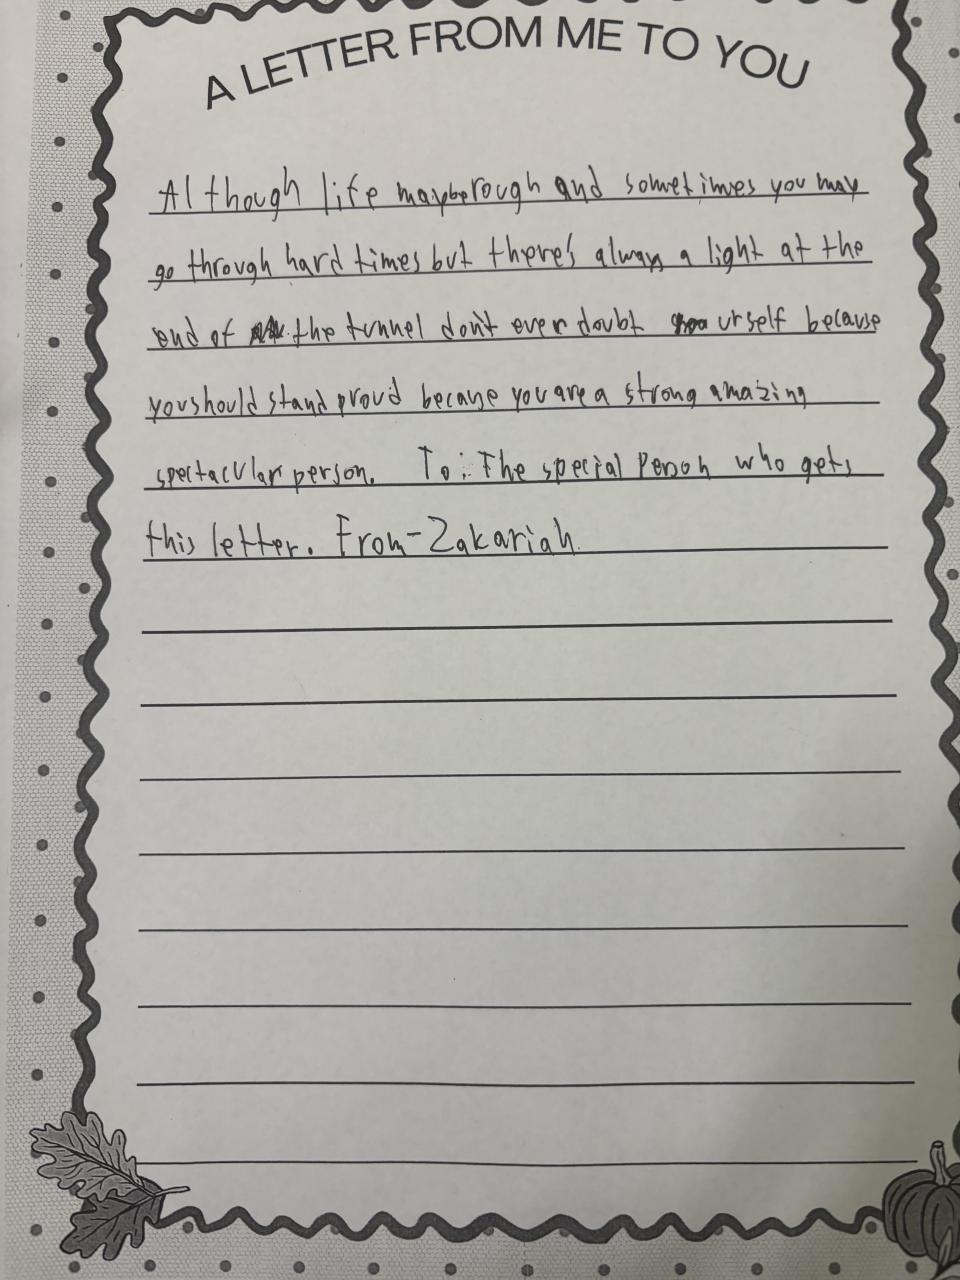 A LETTER FROM ME TO YOU
Although life maybe rough and sometimes you may
go through hard times but there's always a light at the
end of the tunnel don't ever doubt yourself because
you should stand proud because you are a strong amazing
spectacular person. To: The special Person who gets
this letter. From-Zakariah.